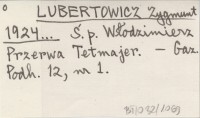 LUBERTOWICZ Zygmunt
1924... Ś.p. Włodzimierz
Przerwa Tetmajer. – Gaz.
Podh. 12, nr 1.